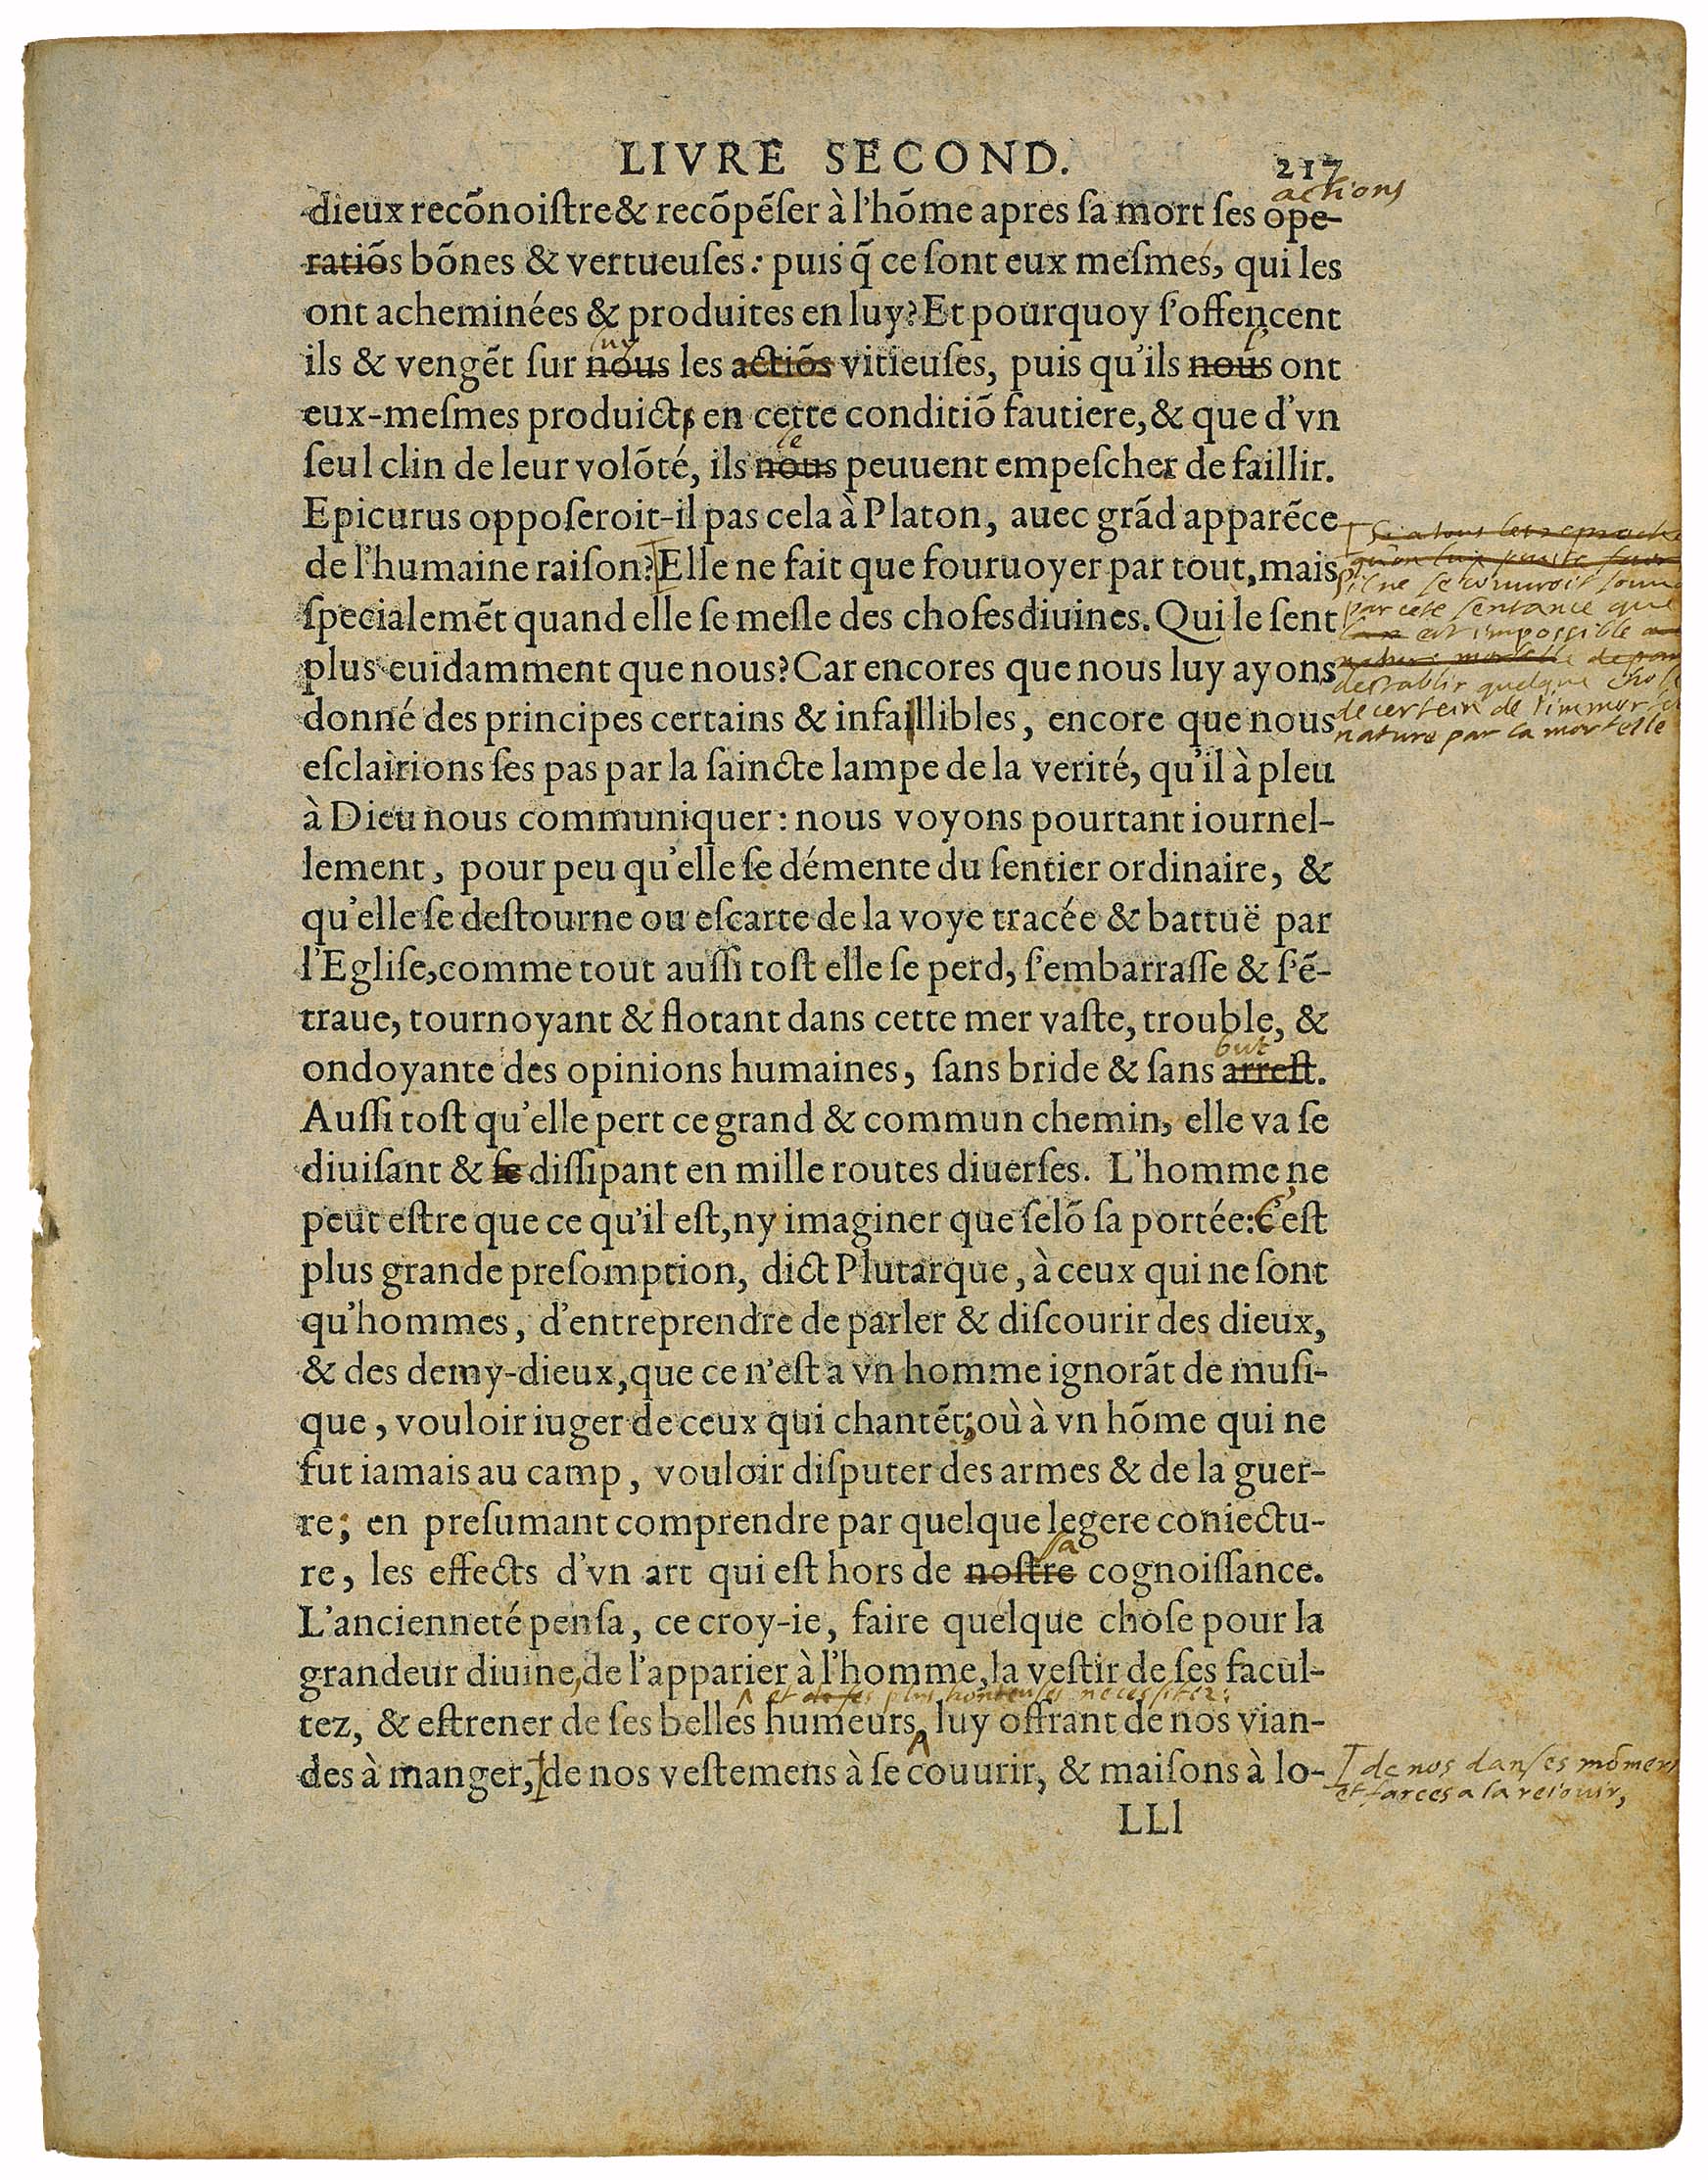 LIVRE SECOND. 217
actions
dieux recõnoiſtre & recõpẽſer à l'hõme apres ſa mort ſes ope-
ratiõs bõnes & vertueuſes: puis q̃ ce ſont eux meſmes, qui les
ont acheminées & produites en luy? Et pourquoy ſ'offencent
luy l'
ils & vengẽt ſur nous les actiõs vitieuſes, puis qu'ils nous ont
eux-meſmes produicts en cette conditiõ fautiere, & que d'vn
le
ſeul clin de leur volõté, ils nous peuuent empeſcher de faillir.
Epicurus oppoſeroit-il pas cela à Platon, auec grãd apparẽce
de l'humaine raiſon? Elle ne fait que fouruoyer par tout, mais
ſpecialemẽt quand elle ſe meſle des choſes diuines. Qui le ſent
plus euidamment que nous? Car encores que nous luy ayons
donné des principes certains & infaillibles, encore que nous
eſclairions ſes pas par la ſaincte lampe de la verité, qu'il à pleu
à Dieu nous communiquer: nous voyons pourtant iournel-
lement, pour peu qu'elle ſe démente du ſentier ordinaire, &
qu'elle ſe deſtourne ou eſcarte de la voye tracée & battuë par
l'Egliſe, comme tout auſſi toſt elle ſe perd, ſ'embarraſſe & ſ'ẽ-
traue, tournoyant & flotant dans cette mer vaſte, trouble, &
but
ondoyante des opinions humaines, ſans bride & ſans arreſt.
Auſſi toſt qu'elle pert ce grand & commun chemin, elle va ſe
diuiſant & ſe diſſipant en mille routes diuerſes. L'homme ne
peut eſtre que ce qu'il eſt, ny imaginer que ſelõ ſa portée: C'eſt
plus grande preſomption, dict Plutarque, à ceux qui ne ſont
qu'hommes, d'entreprendre de parler & diſcourir des dieux,
& des demy-dieux, que ce n'eſt a vn homme ignorãt de muſi-
que, vouloir iuger de ceux qui chantẽt; où à vn hõme qui ne
fut iamais au camp, vouloir diſputer des armes & de la guer-
re; en preſumant comprendre par quelque legere coniectu-
ſa
re, les effects d'vn art qui eſt hors de noſtre cognoiſſance.
L'ancienneté penſa, ce croy-ie, faire quelque choſe pour la
grandeur diuine, de l'apparier à l'homme, la veſtir de ſes facul-
et de ſes plus honteuſes necessitez:
tez, & eſtrener de ſes belles humeurs, luy offrant de nos vian-
des à manger, de nos veſtemens à ſe couurir, & maiſons à lo-
LLl
Si a tous les
qu'on luy
il ne se
par cete sentance que
est impossible
nature mortelle
destablir quelque
de certein de l'
nature par la mortelle
de nos danses
et farces a la reiouir,